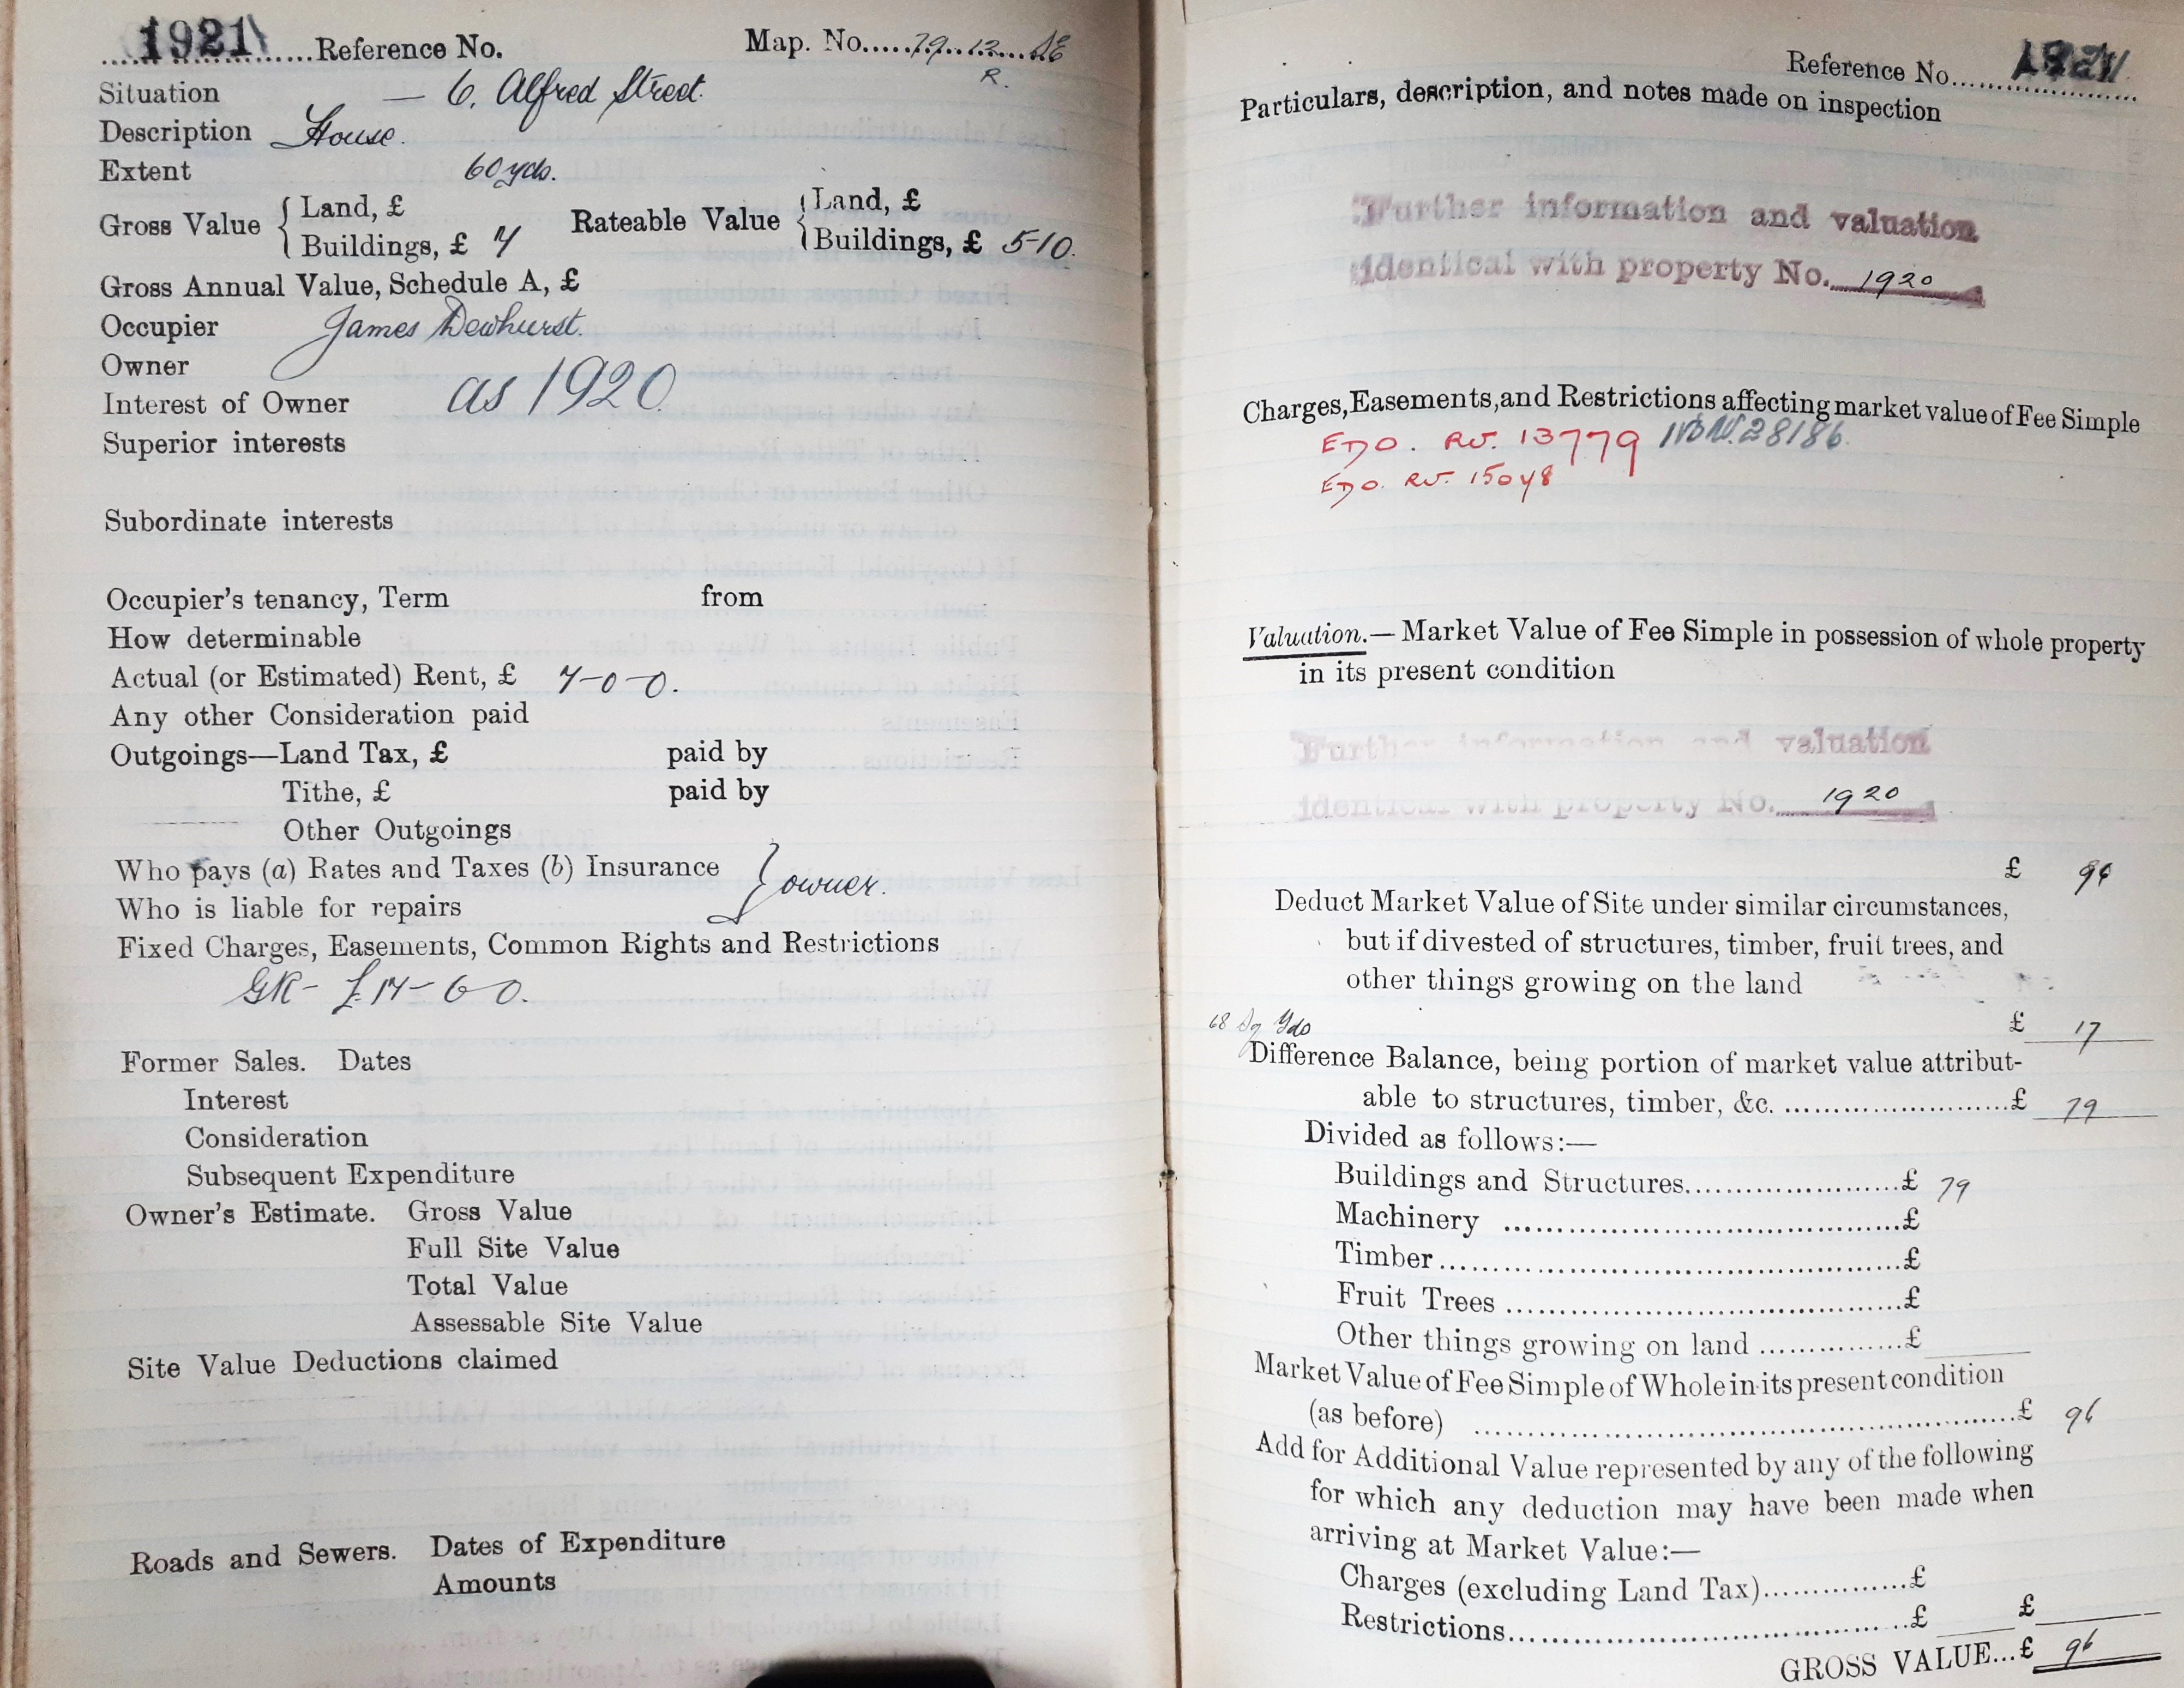 1921 Reference No. Map. No. 79.12. SE
R.
Situation — 6, Alfred Street.
Description House.
Extent 60 yds.
Gross Value { Land, £ Rateable Value { Land, £
Buildings, £ 7 Buildings, £ 5-10.
Gross Annual Value, Schedule A, £
Occupier James Dewhurst.
Owner
Interest of Owner as 1920
Superior interests
Subordinate interests
Occupier's tenancy, Term from
How determinable
Actual (or Estimated) Rent, £ 7-0-0.
Any other Consideration paid
Outgoings—Land Tax, £ paid by
Tithe, £ paid by
Other Outgoings
Who pays (a) Rates and Taxes (b) Insurance } owner.
Who is liable for repairs
Fixed Charges, Easements, Common Rights and Restrictions
GR- £17-6-0.
Former Sales. Dates
Interest
Consideration
Subsequent Expenditure
Owner's Estimate. Gross Value
Full Site Value
Total Value
Assessable Site Value
Site Value Deductions claimed
Roads and Sewers. Dates of Expenditure
Amounts
Reference No. 1921
Particulars, description, and notes made on inspection
Further information and valuation
identical with property No. 1920
Charges, Easements, and Restrictions affecting market value of Fee Simple
13779 28186.
Valuation.— Market Value of Fee Simple in possession of whole property
in its present condition
Further information and valuation
identical with property No. 1920
£ 96
Deduct Market Value of Site under similar circumstances,
but if divested of structures, timber, fruit trees, and
other things growing on the land
68 Sq Yds £ 17
Difference Balance, being portion of market value attribut-
able to structures, timber, &c. £ 79
Divided as follows:—
Buildings and Structures £ 79
Machinery £
Timber £
Fruit Trees £
Other things growing on land £
Market Value of Fee Simple of Whole in its present condition
(as before) £ 96
Add for Additional Value represented by any of the following
for which any deduction may have been made when
arriving at Market Value:—
Charges (excluding Land Tax) £
Restrictions £ £
GROSS VALUE...£ 96